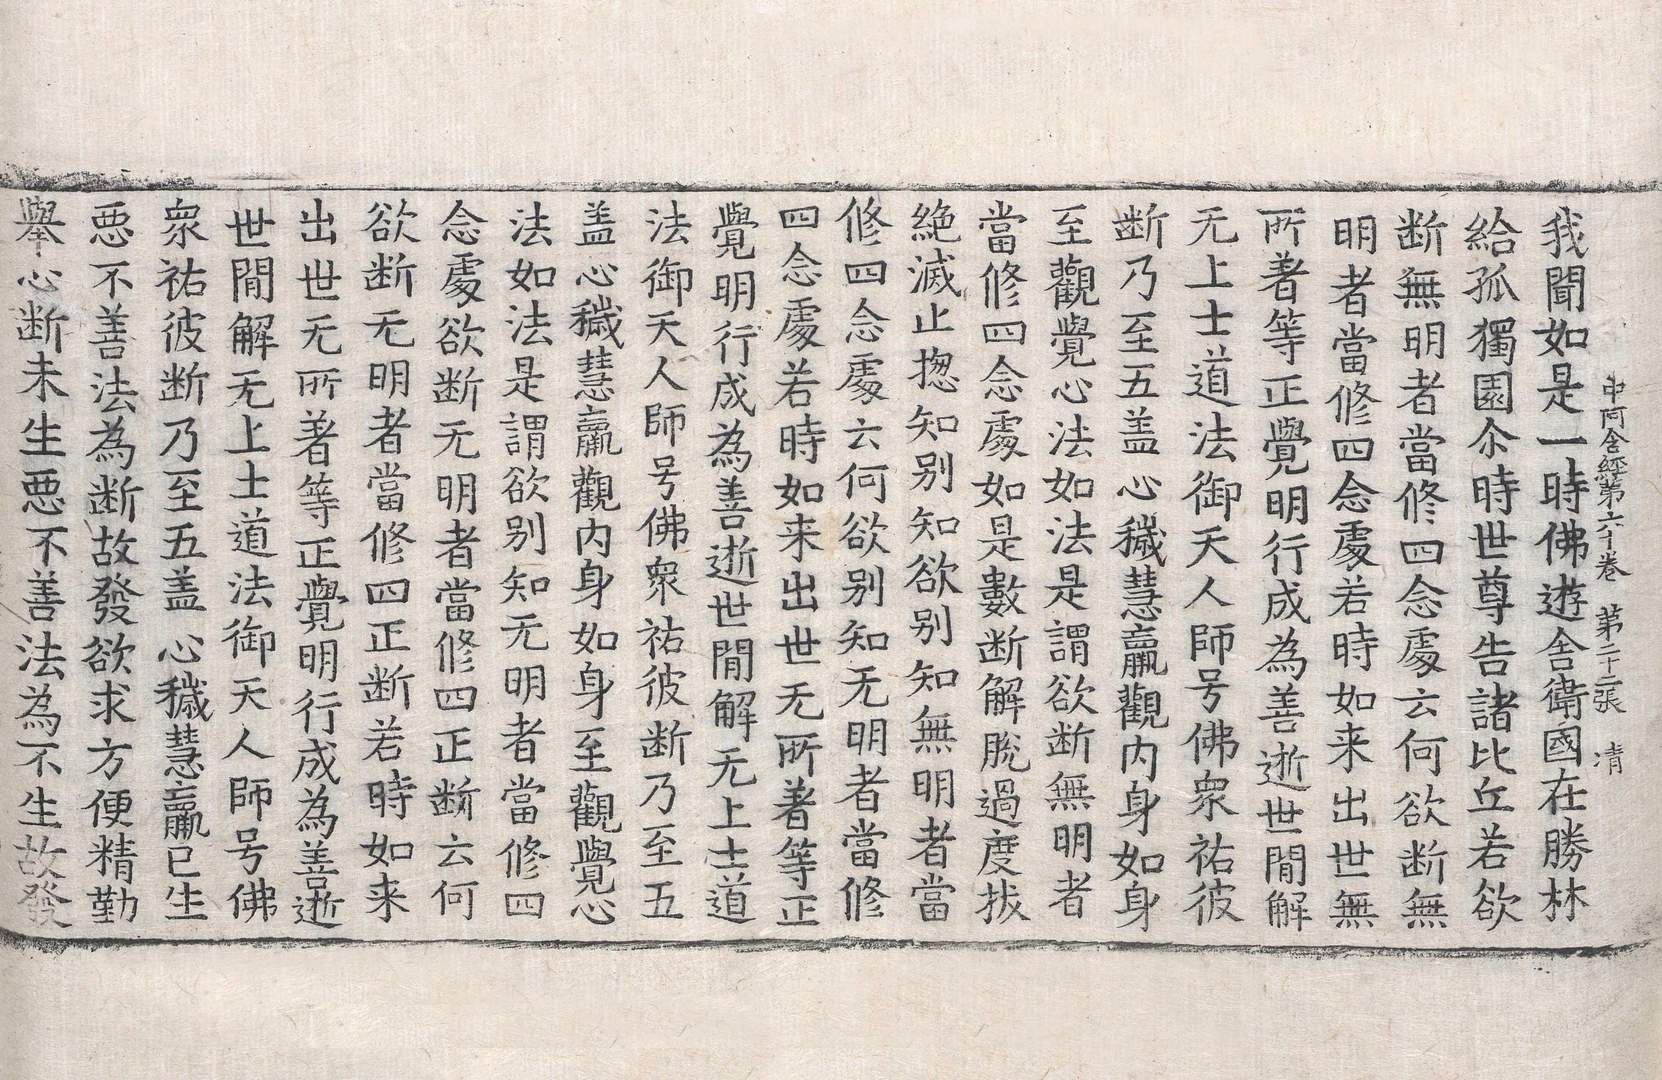 中阿含經第六十卷　第二十二張　清
我聞如是一時佛遊舍衛國在勝林
給孤獨園尒時世尊告諸比丘若欲
断無明者當修四念處云何欲断無
明者當修四念處若時如来出世無
所著等正覺明行成為善逝世間解
无上士道法御天人師号佛衆祐彼
断乃至五盖心穢慧羸觀内身如身
至觀覺心法如法是謂欲断無明者
當修四念處如是數断解脫過度拔
絶滅止揔知别知欲别知無明者當
修四念處云何欲别知无明者當修
四念處若時如来出世无所著等正
覺明行成為善逝世間解无上士道
法御天人師号佛衆祐彼断乃至五
盖心穢慧羸觀内身如身至觀覺心
法如法是謂欲别知无明者當修四
念處欲断无明者當修四正断云何
欲断无明者當修四正断若時如来
出世无所著等正覺明行成為善逝
世間解无上士道法御天人師号佛
衆祐彼断乃至五盖心穢慧羸已生
悪不善法為断故發欲求方便精勤
舉心断未生悪不善法為不生故發